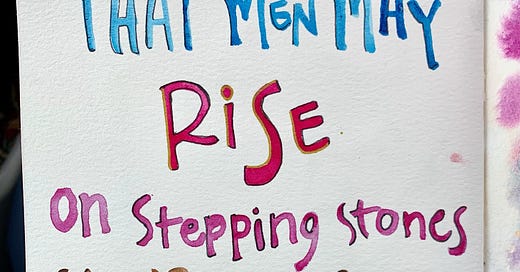 THAT MEN MAY
RiSE
on Stepping Stones